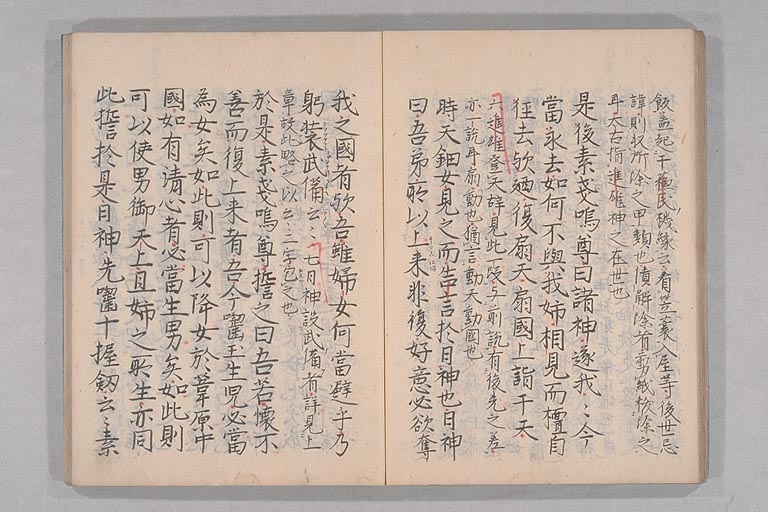 飯盖起于種民機緣云着笠蓑入屋等後世忌
諱則収所除之甲類也債解除者
耳天右指進雄神之在世也
是後素戔嗚尊曰諸神逐我々今
當永去如何不與我姉相見而擅自
徃去欤廼復扇天扇國上詣于天
六進雄登天辞見此一段与前說有後先之差
亦一說耳扇動也猶言動天動國也
時天鈿女見之而告言於日神也日神
曰吾弟所以上来非復好意必欲奪
我之國者欤吾雖婦女何當避乎乃
躬装武備云々七日神設武備者詳見上
章故此略之以云云二字包之也
於是素戔嗚尊誓之曰吾若懐不
善而復上来者吾今囓玉生児必當
為女矣如此則可以降女於葦原中
國如有清心者必當生男矣如此則
可以使男御天上且姉之所生亦同
此誓於是日神先囓十握劔云々素